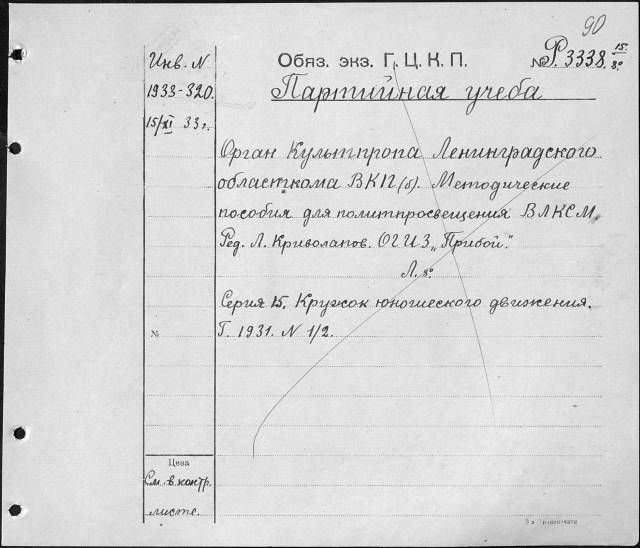 90
Инв. N
1933-320.
15/XI 33 г.
Обяз. экз. Г. Ц. К. П.
№ P. 3338. 15/8°
Партийная учеба
Орган Культпропа Ленинградского
областкома ВКП(б). Методические
пособия для политпросвещения ВЛКСМ.
Ред. Л. Криволапов. ОГИЗ „Прибой".
Л. 8°
Серия 15. Кружок юношеского движения.
Г. 1931. N 1/2.
№
Цена
См. в контр.
листе.